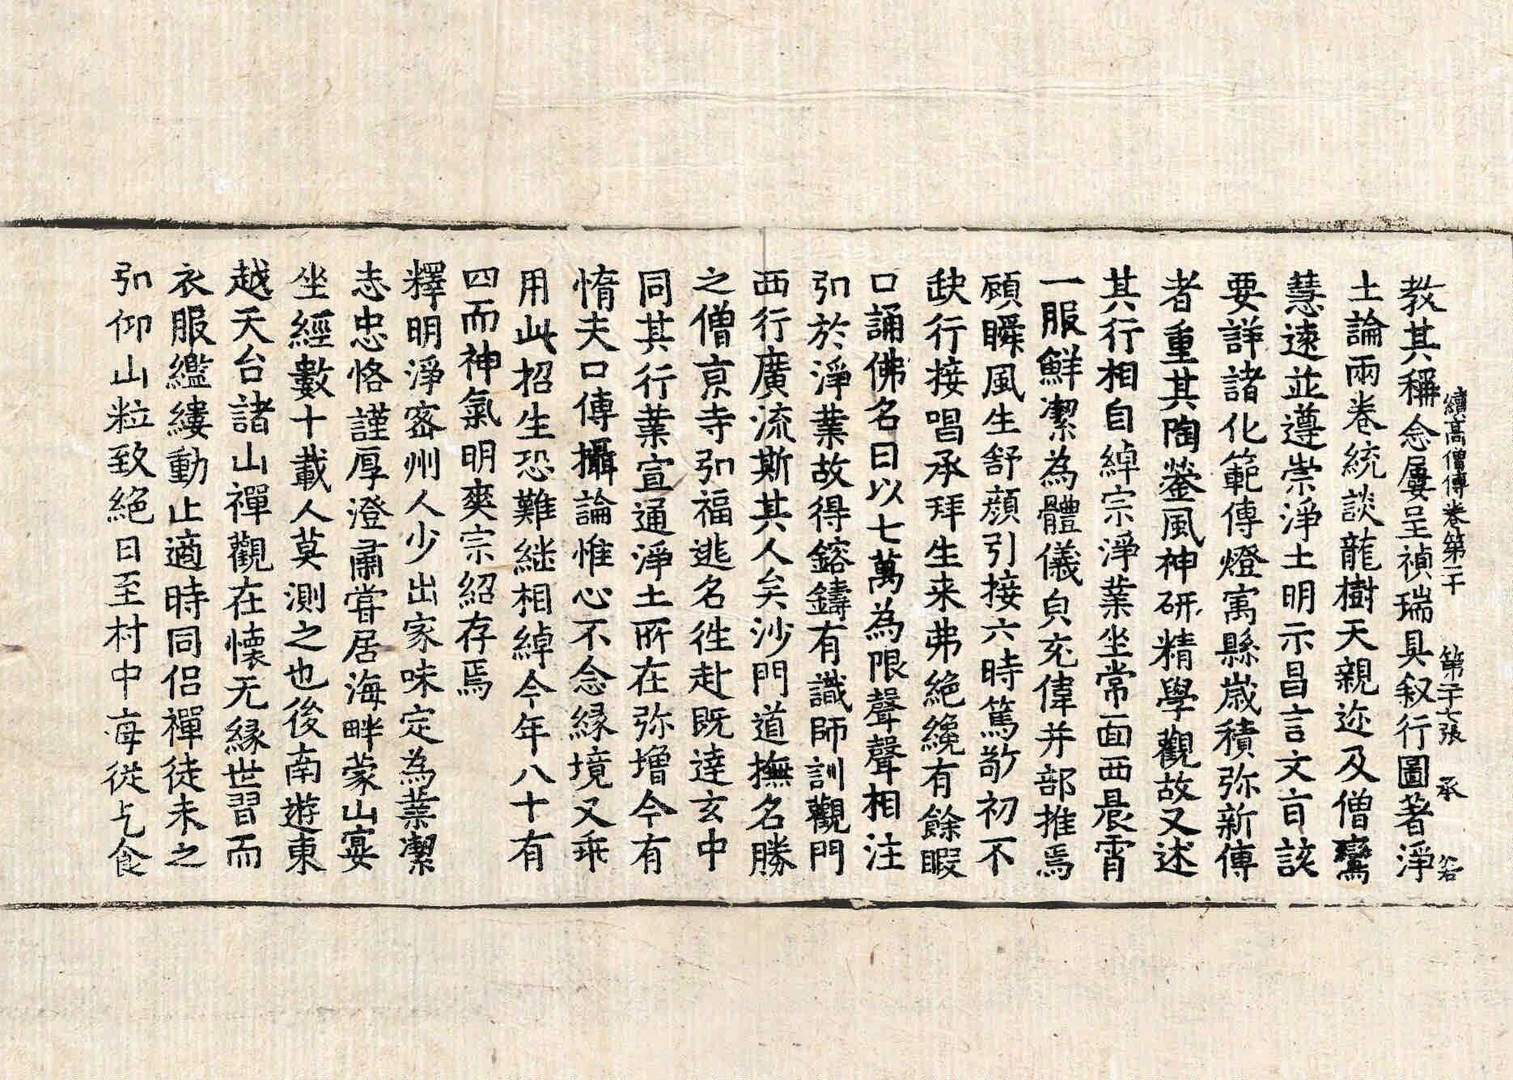 續高僧傳卷第二十 第二十七張 承 
教其稱念屢呈禎瑞具叙行圖著淨
土論兩卷統談龍樹天親迩及僧鸞
慧遠並遵崇淨土明示昌言文旨該
要詳諸化範傳燈寓縣歲積弥新傳
者重其陶鎣風神研精學觀故又述
其行相自綽宗淨業坐常面西晨宵
一服鮮潔為體儀皃充偉并部推焉
顧瞬風生舒顔引接六時篤敬初不
缺行接唱承拜生来弗絶纔有餘暇
口誦佛名日以七萬為限聲聲相注
弘於淨業故得鎔鑄有識師訓觀門
西行廣流斯其人矣沙門道撫名勝
之僧京寺弘福逃名徃赴既達玄中
同其行業宣通淨土所在弥增今有
惰夫口傳攝論惟心不念緣境又乖
用此招生恐難継相綽今年八十有
四而神氣明爽宗紹存焉
釋明淨密州人少出家味定為業潔
志忠恪謹厚澄肅甞居海畔蒙山宴
坐經數十載人莫測之也後南遊東
越天台諸山禪觀在懷无緣世習而
衣服繿縷動止適時同侣禪徒未之
弘仰山粒致絕日至村中每從乞食